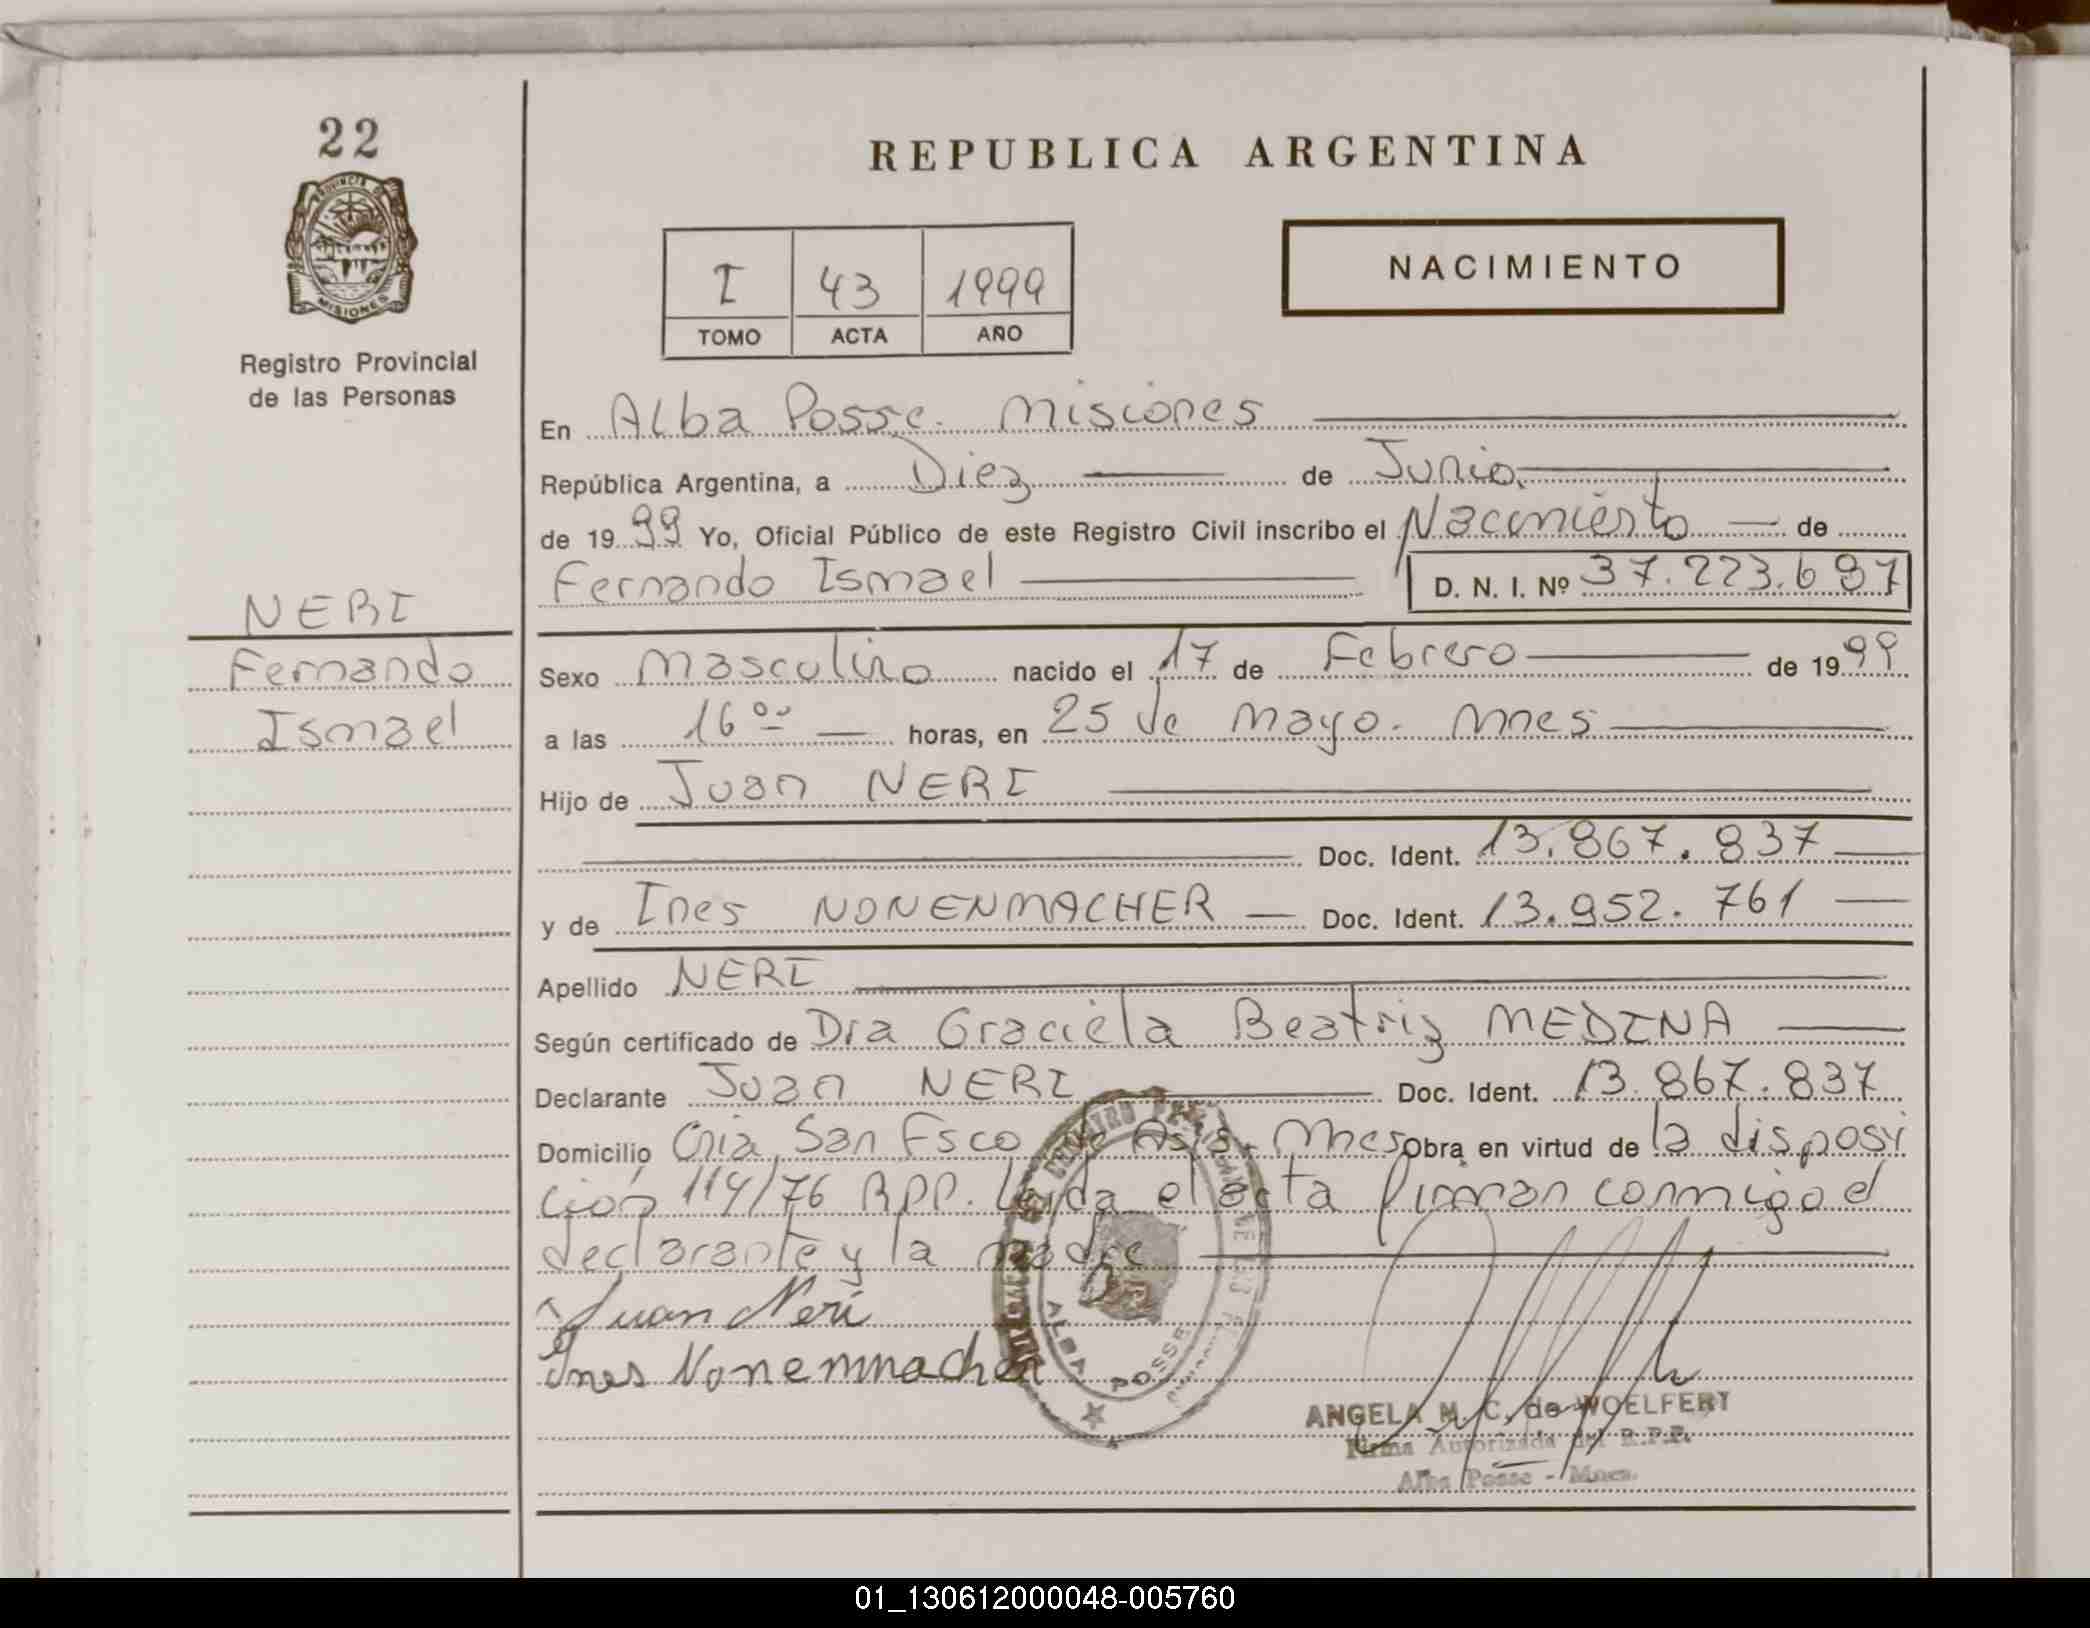 22
REPUBLICA ARGENTINA
PROVINCIA DE
MISIONES
Registro Provincial
de las Personas
I 43 1999
TOMO ACTA AÑO
NACIMIENTO
En Alba Posse. Misiones
República Argentina, a Diez de Junio
de 1999 Yo, Oficial Público de este Registro Civil inscribo el Nacimiento de
Fernando Ismael D. N. I. Nº 37.223.697
NERI
Fernando
Ismael
Sexo Masculino nacido el 17 de Febrero de 1999
a las 16 00 horas, en 25 de Mayo. Mnes
Hijo de Juan NERI
Doc. Ident. 13.867.837
y de Ines NONENMACHER Doc. Ident. 13.952.761
Apellido NERI
Según certificado de Dra Graciela Beatriz MEDINA
Declarante Juan NERI Doc. Ident. 13.867.837
Domicilio Cnia San Fsco de Asis. Mnes Obra en virtud de la disposi
ción 114/76 RPP. Leida el acta firman conmigo el
declarante y la madre
Juan Neri
Ines Nonemnacher
ALBA POSSE
ANGELA M. C. de WOELFERT
Firma Autorizada del R.P.P.
Alba Posse - Mnes.
01_130612000048-005760